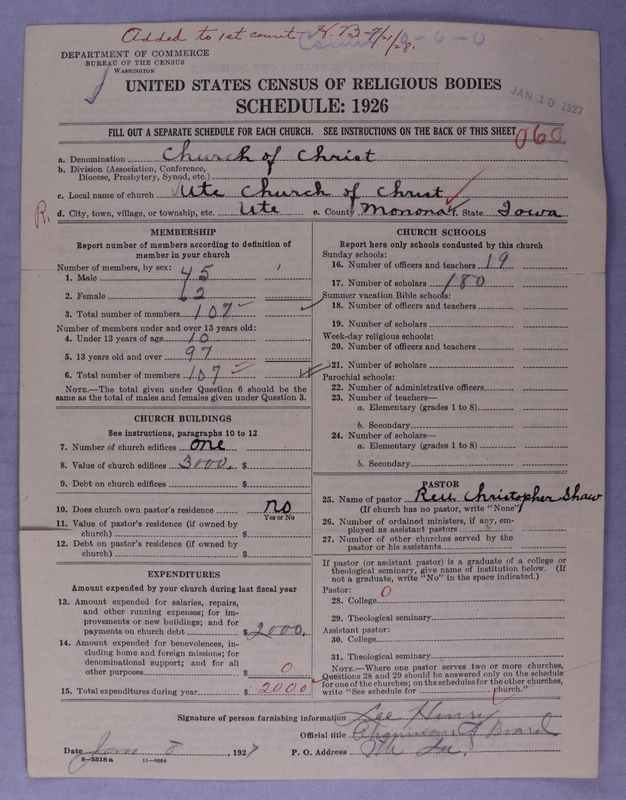 Added to 1st count H.B. 7/21/28.
DEPARTMENT OF COMMERCE
BUREAU OF THE CENSUS
WASHINGTON
UNITED STATES CENSUS OF RELIGIOUS BODIES
SCHEDULE: 1926
JAN 10 1927
FILL OUT A SEPARATE SCHEDULE FOR EACH CHURCH. SEE INSTRUCTIONS ON THE BACK OF THIS SHEET
060
a. Denomination Church of Christ
b. Division (Association, Conference,
Diocese, Presbytery, Synod, etc.)
c. Local name of church Ute Church of Christ
R.
d. City, town, village, or township, etc. Ute e. County Monona f. State Iowa
MEMBERSHIP
Report number of members according to definition of
member in your church
Number of members, by sex:
1. Male 45
2. Female 62
3. Total number of members 107
Number of members under and over 13 years old:
4. Under 13 years of age 10
5. 13 years old and over 97
6. Total number of members 107
NOTE.—The total given under Question 6 should be the
same as the total of males and females given under Question 3.
CHURCH BUILDINGS
See instructions, paragraphs 10 to 12
7. Number of church edifices one
8. Value of church edifices $ 3000.
9. Debt on church edifices $
10. Does church own pastor's residence no
Yes or No
11. Value of pastor's residence (if owned by
church) $
12. Debt on pastor's residence (if owned by
church) $
EXPENDITURES
Amount expended by your church during last fiscal year
13. Amount expended for salaries, repairs,
and other running expenses; for im-
provements or new buildings; and for
payments on church debt $ 2000.
14. Amount expended for benevolences, in-
cluding home and foreign missions; for
denominational support; and for all
other purposes $ 0
15. Total expenditures during year $ 2000
CHURCH SCHOOLS
Report here only schools conducted by this church
Sunday schools:
16. Number of officers and teachers 19
17. Number of scholars 180
Summer vacation Bible schools:
18. Number of officers and teachers
19. Number of scholars
Week-day religious schools:
20. Number of officers and teachers
21. Number of scholars
Parochial schools:
22. Number of administrative officers
23. Number of teachers—
a. Elementary (grades 1 to 8)
b. Secondary
24. Number of scholars—
a. Elementary (grades 1 to 8)
b. Secondary
PASTOR
25. Name of pastor Rev. Christopher Shaw
(If church has no pastor, write "None")
26. Number of ordained ministers, if any, em-
ployed as assistant pastors
27. Number of other churches served by the
pastor or his assistants
If pastor (or assistant pastor) is a graduate of a college or
theological seminary, give name of institution below. (If
not a graduate, write "No" in the space indicated.)
Pastor:
28. College 0
29. Theological seminary
Assistant pastor:
30. College
31. Theological seminary
NOTE.—Where one pastor serves two or more churches,
Questions 28 and 29 should be answered only on the schedule
for one of the churches; on the schedules for the other churches,
write "See schedule for church."
Signature of person furnishing information Lee Henry
Official title Chairman of Board
Date Jan 8, 1927 P. O. Address Ute Ia.
8—5518 a 11—9284